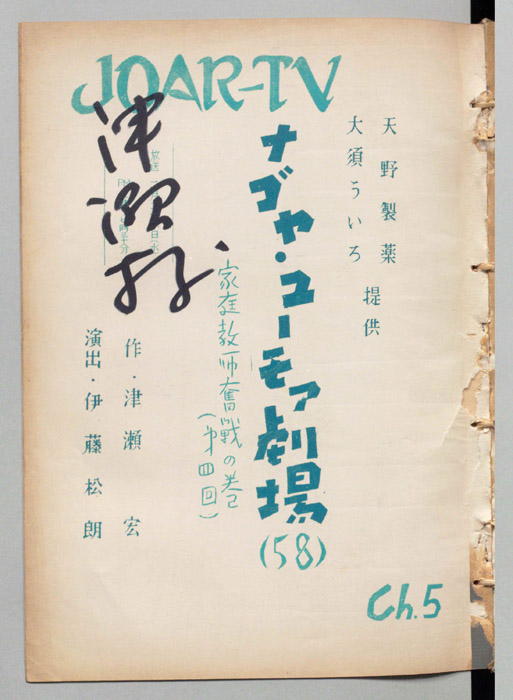 JOAR-TV
天野製薬
大須ういろ 提供
ナゴヤ・ユーモア劇場
(58)
家庭教師奮戦の巻
(第四回)
津瀬
作・津瀬 宏
演出・伊藤松朗
Ch.5